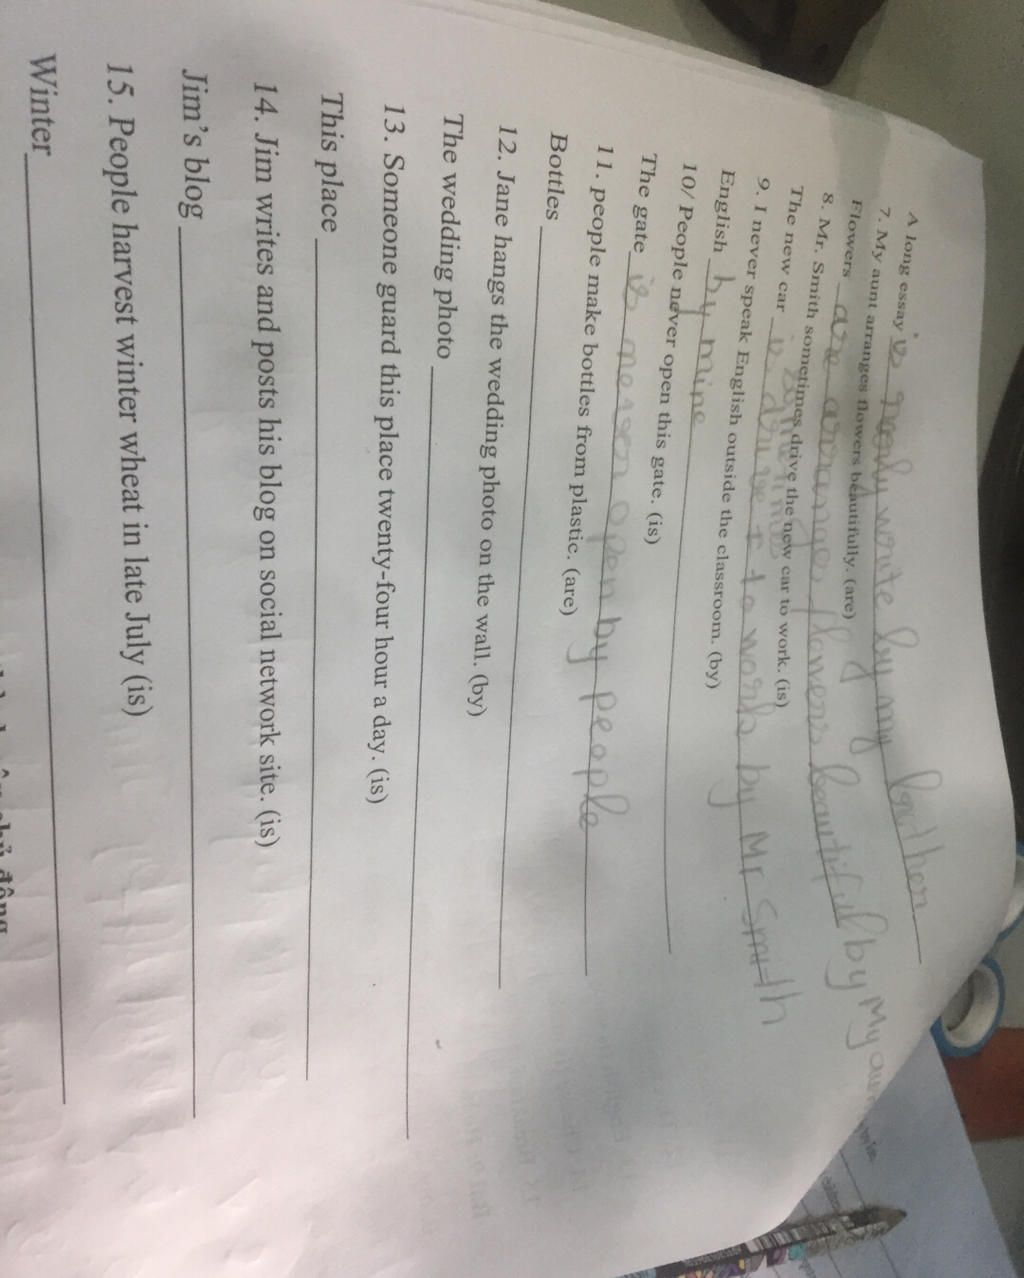 A long essay is nearly write by my brother
7. My aunt arranges flowers beautifully. (are)
Flowers are arranges flowers beautiful by My aun
8. Mr. Smith sometimes drive the new car to work. (is)
sometimes
The new car is drive to work by Mr Smith
9. I never speak English outside the classroom. (by)
English by mine
10/ People never open this gate. (is)
The gate is open by people
11. people make bottles from plastic. (are)
Bottles
12. Jane hangs the wedding photo on the wall. (by)
The wedding photo
13. Someone guard this place twenty-four hour a day. (is)
This place
14. Jim writes and posts his blog on social network site. (is)
Jim's blog
15. People harvest winter wheat in late July (is)
Winter